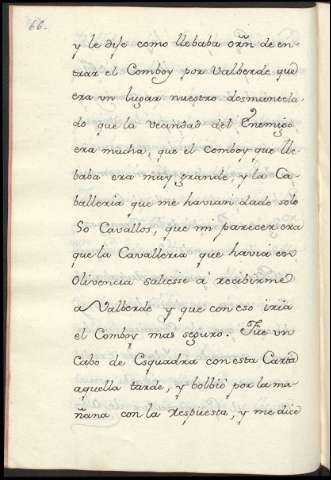 66.
y le dije como llebaba orñ de en-
trar el Comboy por Valberde que
era vn lugar nuestro desmantela-
do que la vecindad del Enemigo
era mucha, que el comboy que lle-
baba era muy grande y la Ca-
balleria que me havian dado solo
50 Cavallos, que mi parecer era
que la Cavalleria que havia en
Olivencia saliesse á recibirme
a Valberde y que con eso iria
el Comboy mas seguro. Fue vn
Cabo de Esquadra con esta Carta
aquella tarde, y bolbió por la ma-
ñana con la respuesta, y me dice